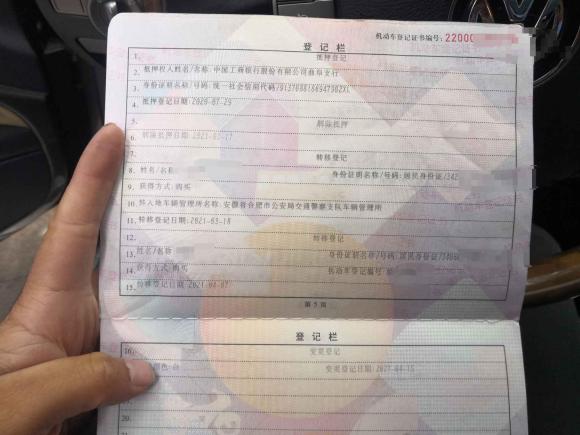 机动车登记证书编号: 22000
登记栏
1. 抵押登记
2. 抵押权人姓名/名称: 中国工商银行股份有限公司曲阜支行
3. 身份证明名称/号码: 统一社会信用代码/
4. 抵押登记日期: 2020-07-29
5. 解除抵押
6. 解除抵押日期: 2021-03-17
7. 转移登记
8. 姓名/名称: 身份证明名称/号码: 居民身份证/342
9. 获得方式: 购买
10. 转入地车辆管理所名称: 安徽省合肥市公安局交通警察支队车辆管理所
11. 转移登记日期: 2021-03-18
12. 转移登记
13. 姓名/名称 身份证明名称/号码: 居民身份证/
14. 获得方式: 购买 机动车登记编号:
15. 转移登记日期: 2021-04-07
第5页
登记栏
16. 变更登记
颜色: 白 变更登记日期: 2021-04-15